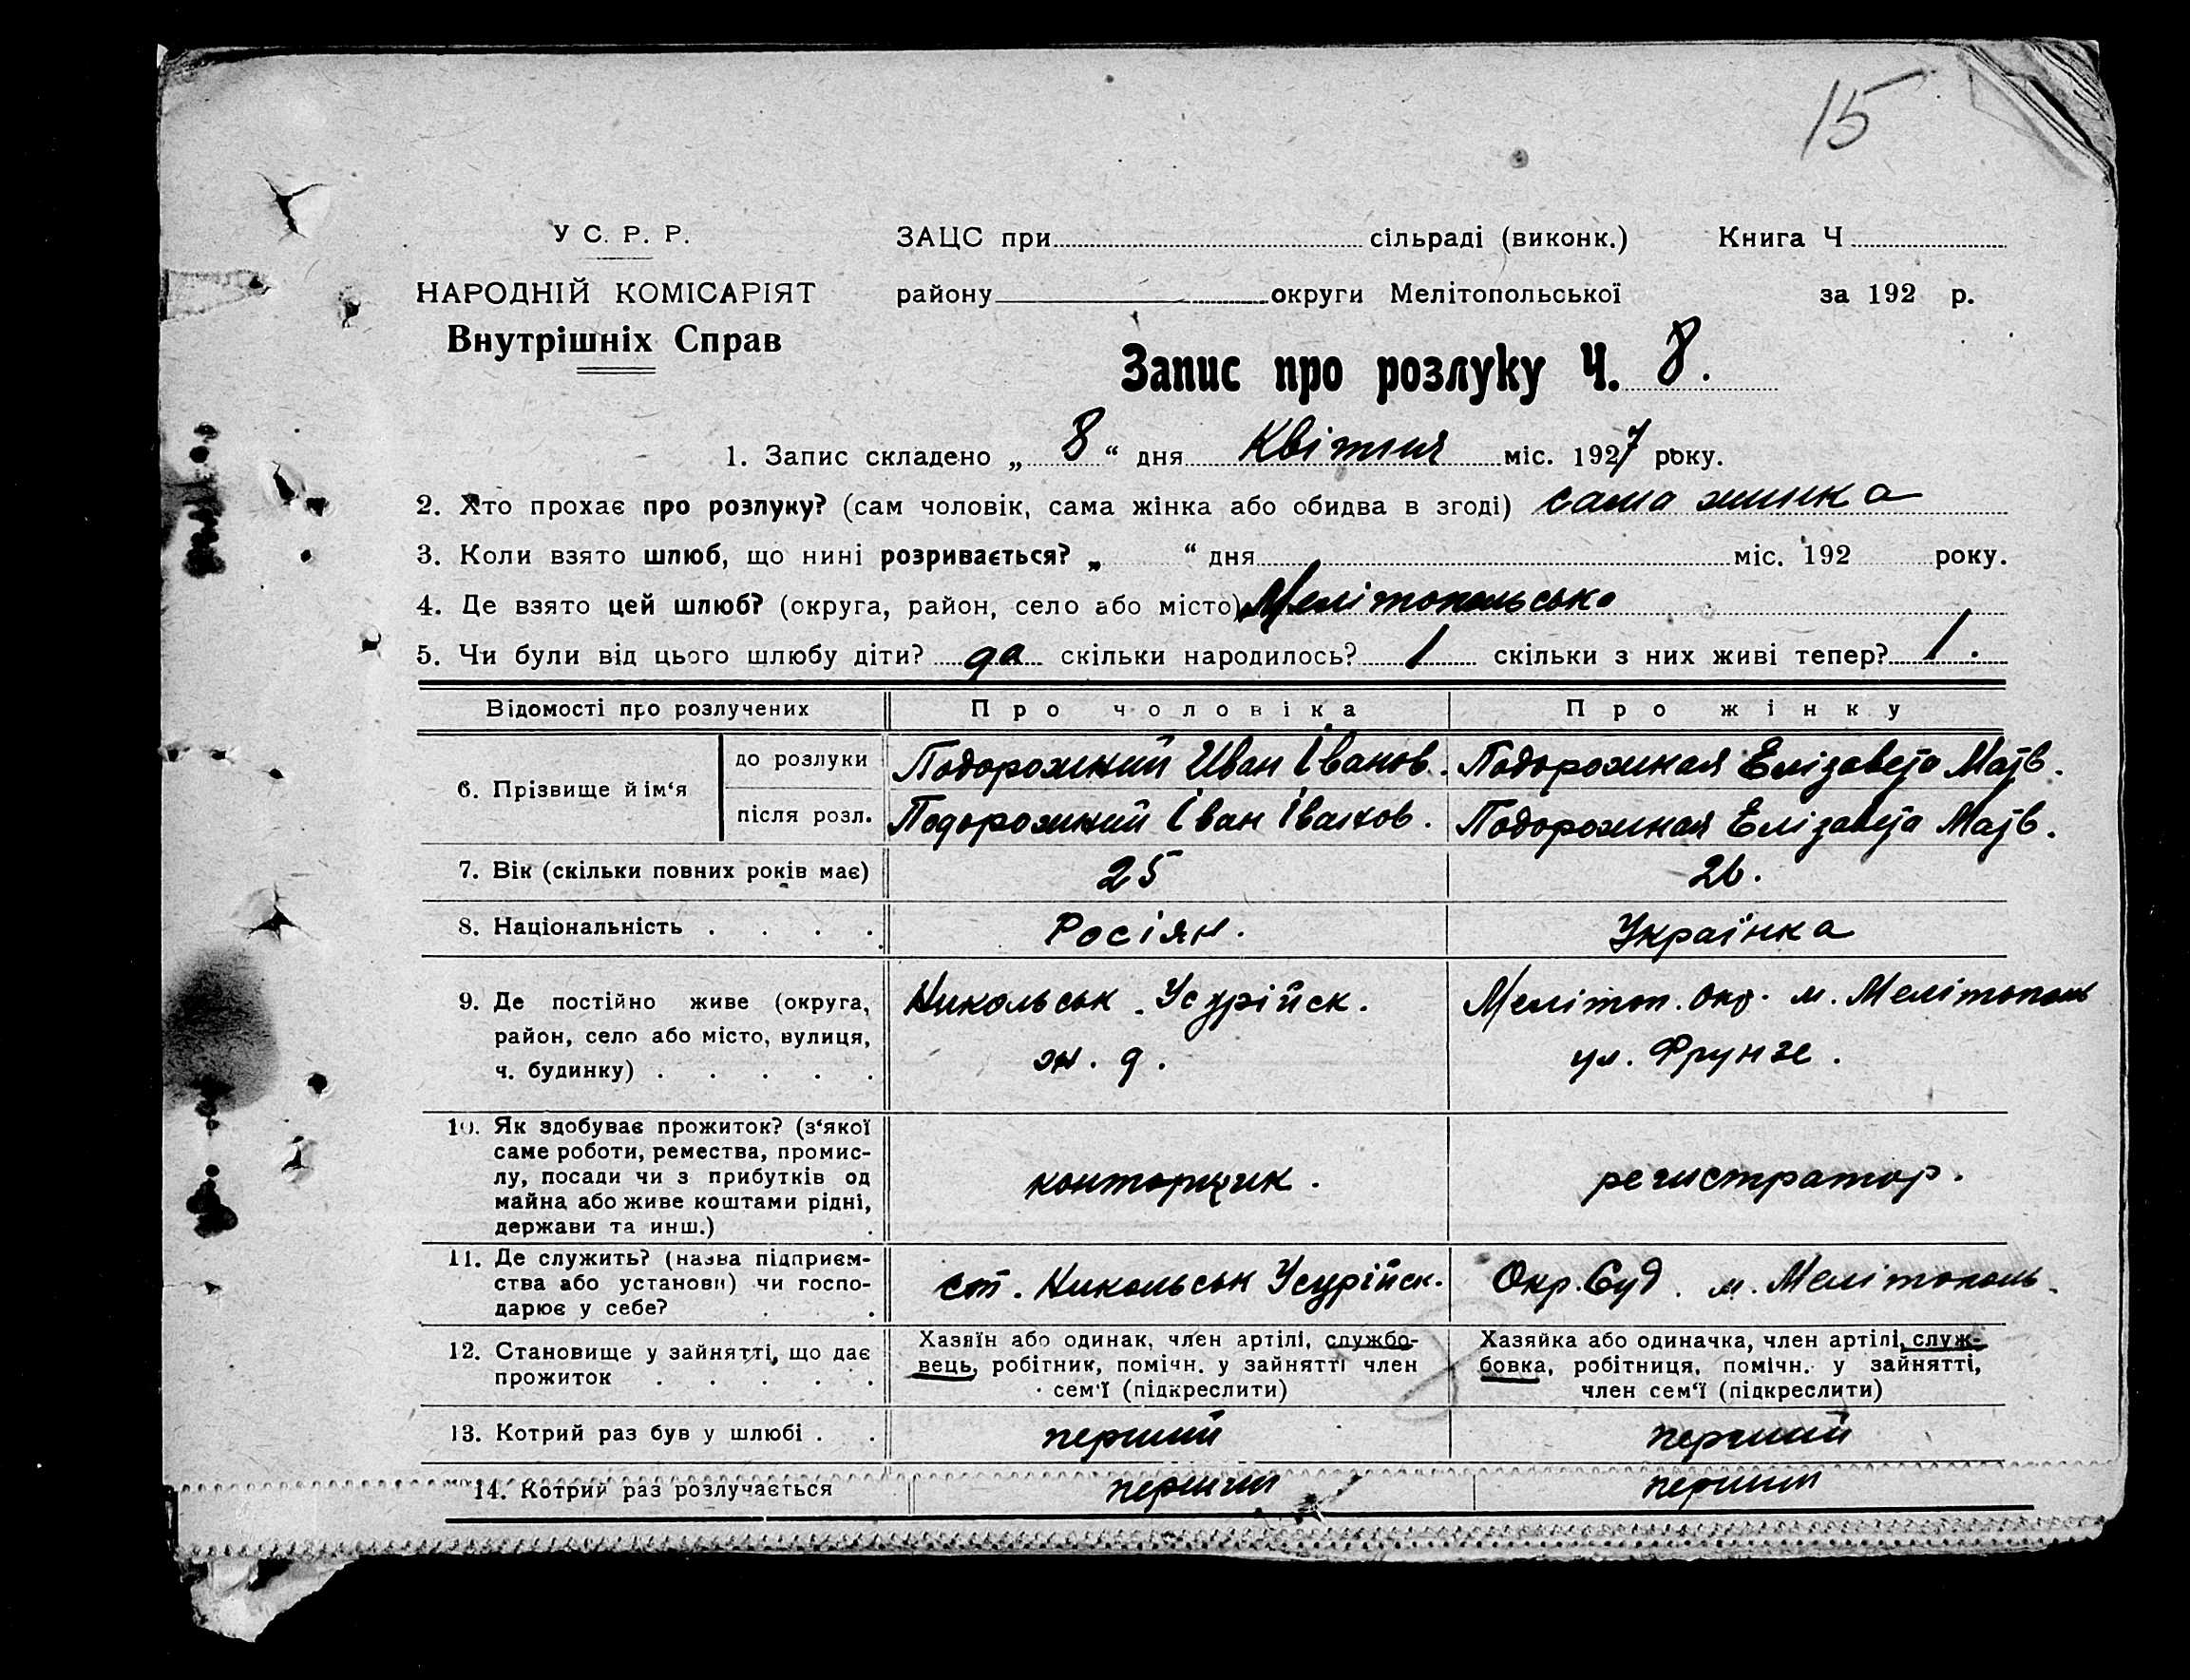 15
У С. Р. Р.
НАРОДНІЙ КОМІСАРІЯТ
Внутрішніх Справ
ЗАЦС при сільраді (виконк.) Книга Ч
району округи Мелітопольської за 192 р.
Запис про розлуку Ч. 8.
1. Запис складено „ 8 “ дня Квітня міс. 1927 року.
2. Хто прохає про розлуку? (сам чоловік, сама жінка або обидва в згоді) сама жинка
3. Коли взято шлюб, що нині розривається? „ “ дня міс. 192 року.
4. Де взято цей шлюб? (округа, район, село або місто) Мелітопольсько
5. Чи були від цього шлюбу діти? да скільки народилось? 1 скільки з них живі тепер? 1.
Відомості про розлучених Про чоловіка Про жінку
6. Прізвище й ім‘я
до розлуки Подорожний Иван Іванов. Подорожная Елізавета Матв.
після розл. Подорожний Іван Іванов. Подорожная Елізавета Матв.
7. Вік (скільки повних років має) 25 26.
8. Національність . . . . Росіян. Українка
9. Де постійно живе (округа,
район, село або місто, вулиця,
ч. будинку) . . . . .
Никольськ. Усурійск.
ж. д.
Мелітоп. окр. м. Мелітополь
ул. Фрунзе.
10. Як здобуває прожиток? (з‘якої
саме роботи, ремества, промис-
лу, посади чи з прибутків од
майна або живе коштами рідні,
держави та инш.) .
конторщик.
регистратор.
11. Де служить? (назва підприєм-
ства або установи) чи госпо-
дарює у себе? . .
ст. Никольськ Усурійск.
Окр. Суд. м. Мелітополь.
12. Становище у зайнятті, що дає
прожиток . . . . .
Хазяїн або одинак, член артілі, службо-
вець, робітник, помічн. у зайнятті член
сем‘ї (підкреслити)
Хазяйка або одиначка, член артілі, служ-
бовка, робітниця, помічн. у зайнятті,
член сем‘ї (підкреслити)
13. Котрий раз був у шлюбі . . перший перший
14. Котрий раз розлучається перший перший